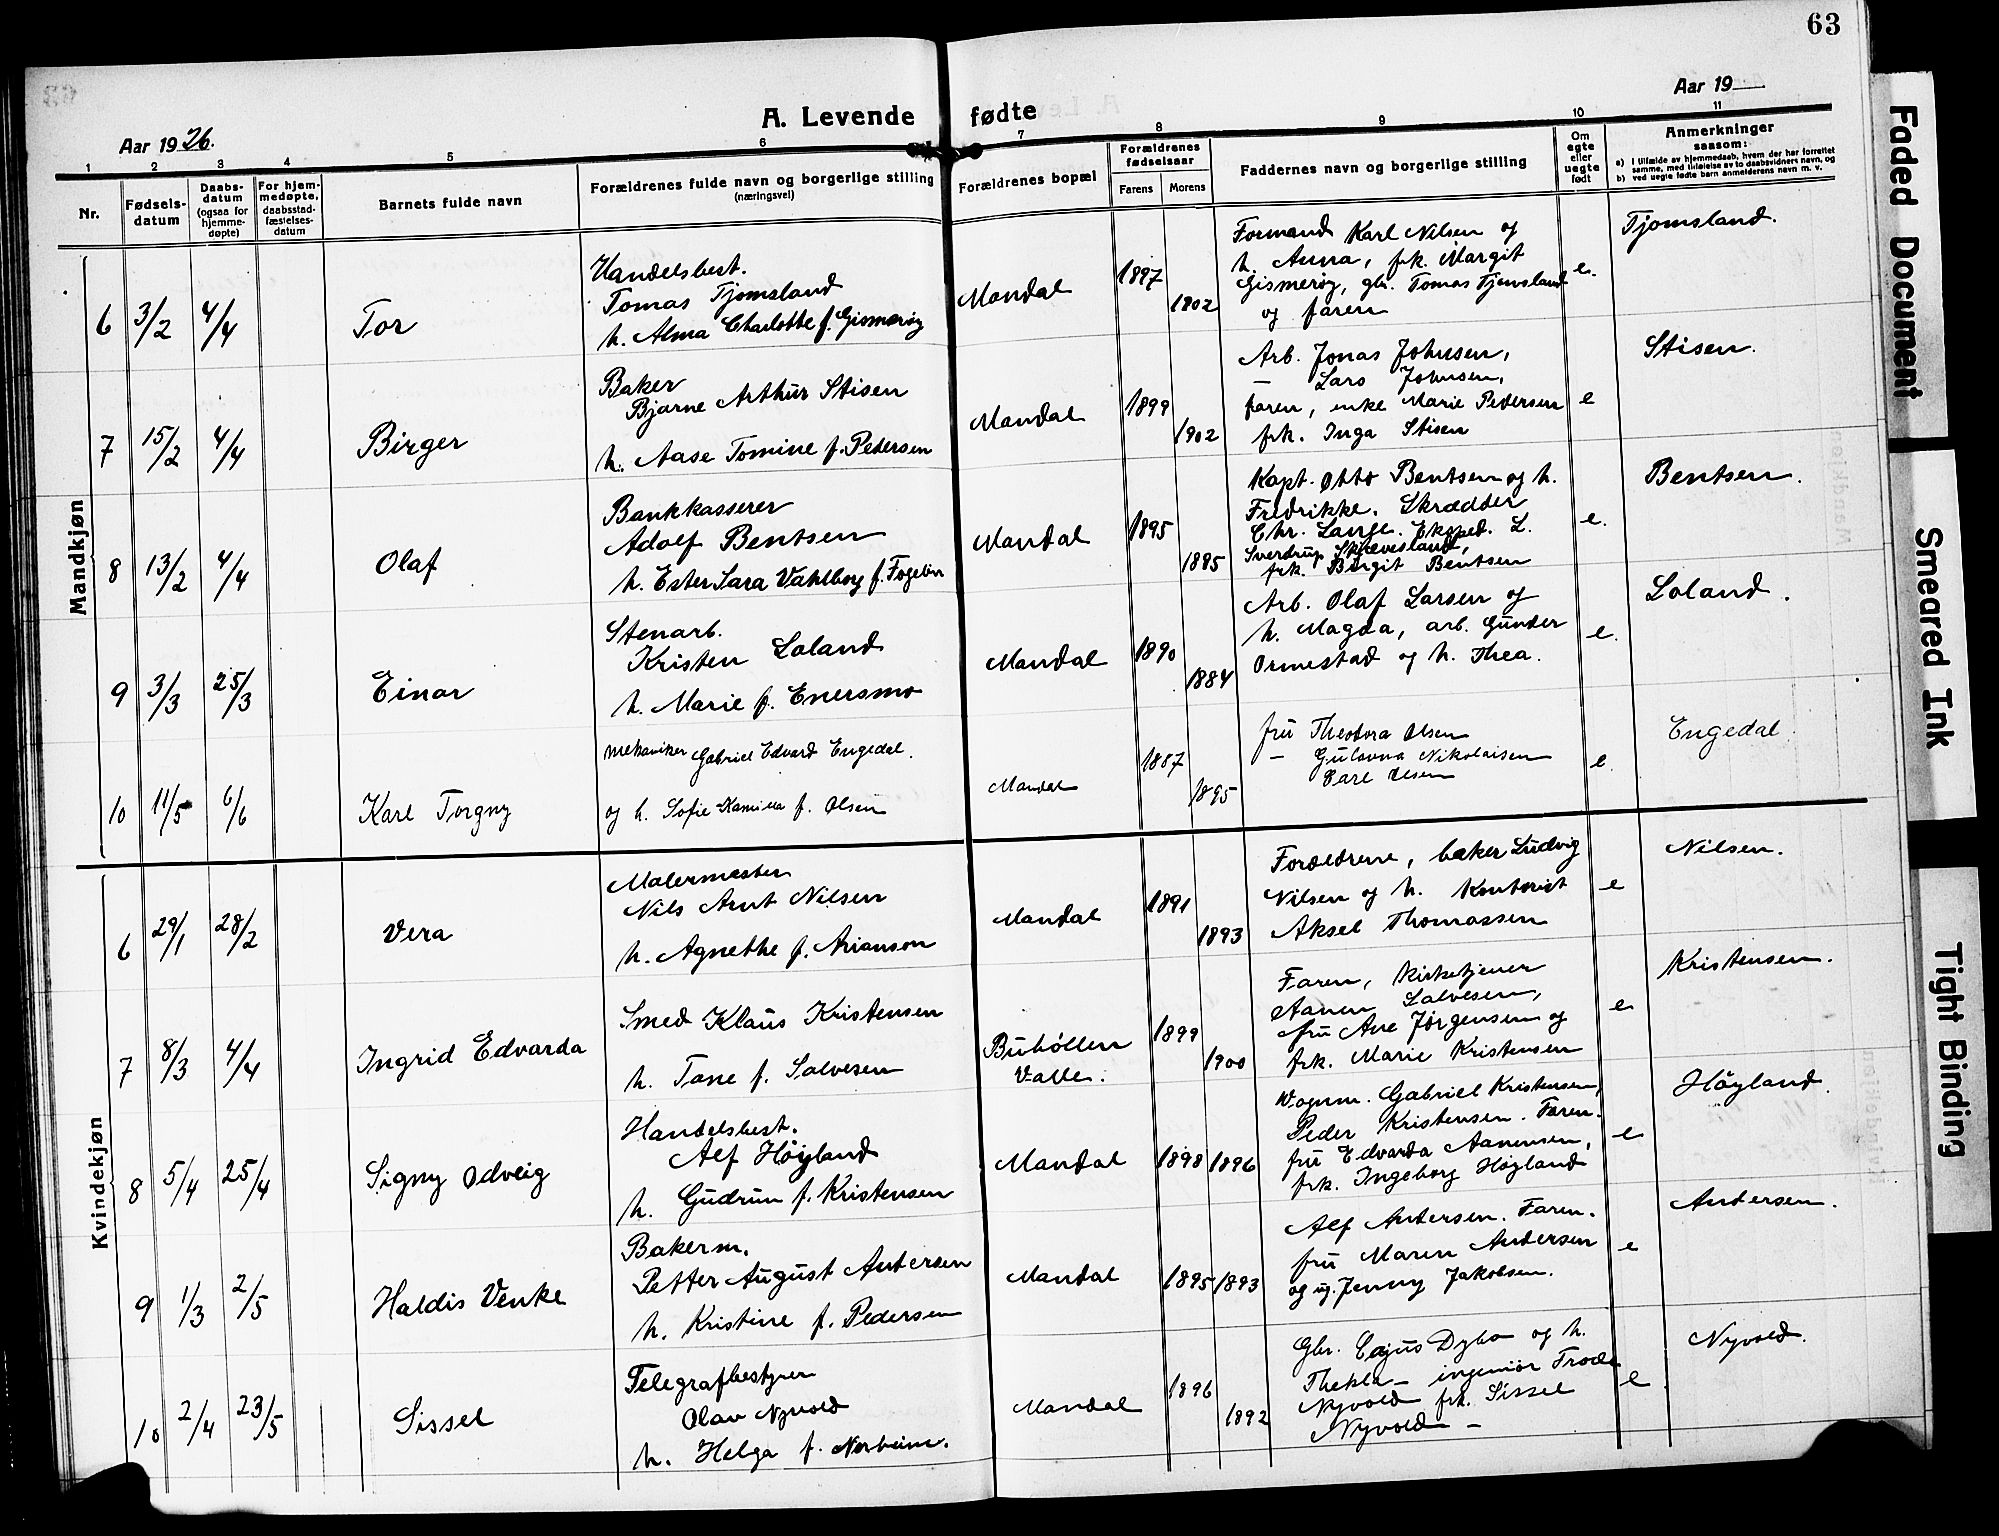 63
Aar 1926.
A. Levende fødte
Aar 19
1 2 3 4 5 6 7 8 9 10 11
Nr.
Fødsels-
datum
Daabs-
datum
(ogsaa for
hjemme-
døpte)
For hjem-
medøpte,
daabsstad-
fæstelses-
datum
Barnets fulde navn
Forældrenes fulde navn og borgerlige stilling
(næringsvei)
Forældrenes bopæl
Forældrenes
fødselsaar
Farens Morens
Faddernes navn og borgerlige stilling
Om
egte
eller
uegte
født
Anmerkninger
saasom:
a) I tilfælde av hjemmedaab, hvem der har forrettet
samme, med tilføielse av to daabsvidners navn, og
b) ved uegte fødte barn anmelderens navn m. v.
Mandkjøn
6 3/2 4/4 Tor
Handelsbest.
Tomas Tjomsland
h. Alma Charlotte f. Gismerøy
Mandal 1897 1902
Formand Karl Nilsen og
h. Anna, frk. Margit
Gismerøy, gbr. Tomas Tjomsland
og faren
e.
Tjomsland.
7 15/2 4/4 Birger
Baker
Bjarne Arthur Stisen
h. Aase Tomine f. Pedersen
Mandal 1899 1902
Arb. Jonas Johnsen,
— Lars Johnsen,
faren, enke Marie Pedersen
frk. Inga Stisen
e
Stisen.
8 13/2 4/4 Olaf
Bankkasserer
Adolf Bentsen
h. Ester Sara Vahlborg f. Fogelin
Mandal 1895 1885
Kapt. Otto Bentsen og h.
Fredrikke. Skrædder
Chr. Lange. Eksped. L.
Sverdrup Skjævesland,
frk. Birgit Bentsen
e.
Bentsen.
9 3/3 25/3 Einar
Stenarb.
Kristen Loland
h. Marie f. Enersmo
Mandal 1890 1884
Arb. Olaf Larsen og
h. Magda, arb. Gunder
Ormestad og h. Thea.
e.
Loland.
10 11/5 6/6 Karl Torgny
Mekaniker Gabriel Edvard Engedal.
og h. Sofie Kamilla f. Olsen
Mandal 1887 1895
fru Theodora Olsen
— Gulovna Nikolaisen
Carl Olsen
e.
Engedal.
Kvindekjøn
6 29/1 28/2 Vera
Malermester
Nils Arnt Nilsen
h. Agnethe f. Arianson
Mandal 1891 1893
Forældrene, baker Ludvig
Nilsen og h. Kontorist
Aksel Thomassen
e
Nilsen.
7 8/3 4/4 Ingrid Edvarda
Smed Klaus Kristensen
h. Tane f. Salvesen
Buhöllen
Valle.
1899 1900
Faren, kirketjener
Aanen Salvesen,
fru Ane Jørgensen og
frk. Marie Kristensen
e
Kristensen.
8 5/4 25/4 Signy Odveig
Handelsbest.
Alf Höyland
h. Gudrun f. Kristensen
Mandal 1898 1896
Vognm. Gabriel Kristensen,
Peder Kristensen. Faren.
fru Edvarda Aanensen,
frk. Ingeborg Höyland
e
Höyland.
9 1/3 2/5 Haldis Venke
Bakerm.
Petter August Andersen
h. Kristine f. Pedersen
Mandal 1895 1893
Alf Andersen. Faren.
fru Maren Andersen
og ug. Jenny Jakobsen.
e
Andersen.
10 2/4 23/5 Sissel
Telegrafbestyrer
Olav Nyvold
h. Helga f. Norheim.
Mandal 1896 1892
Gbr. Cajus Dybo og h.
Thekla — ingeniör Frode
Nyvold frk. Sissel
Nyvold —
e
Nyvold.
Faded Document
Smeared Ink
Tight Binding